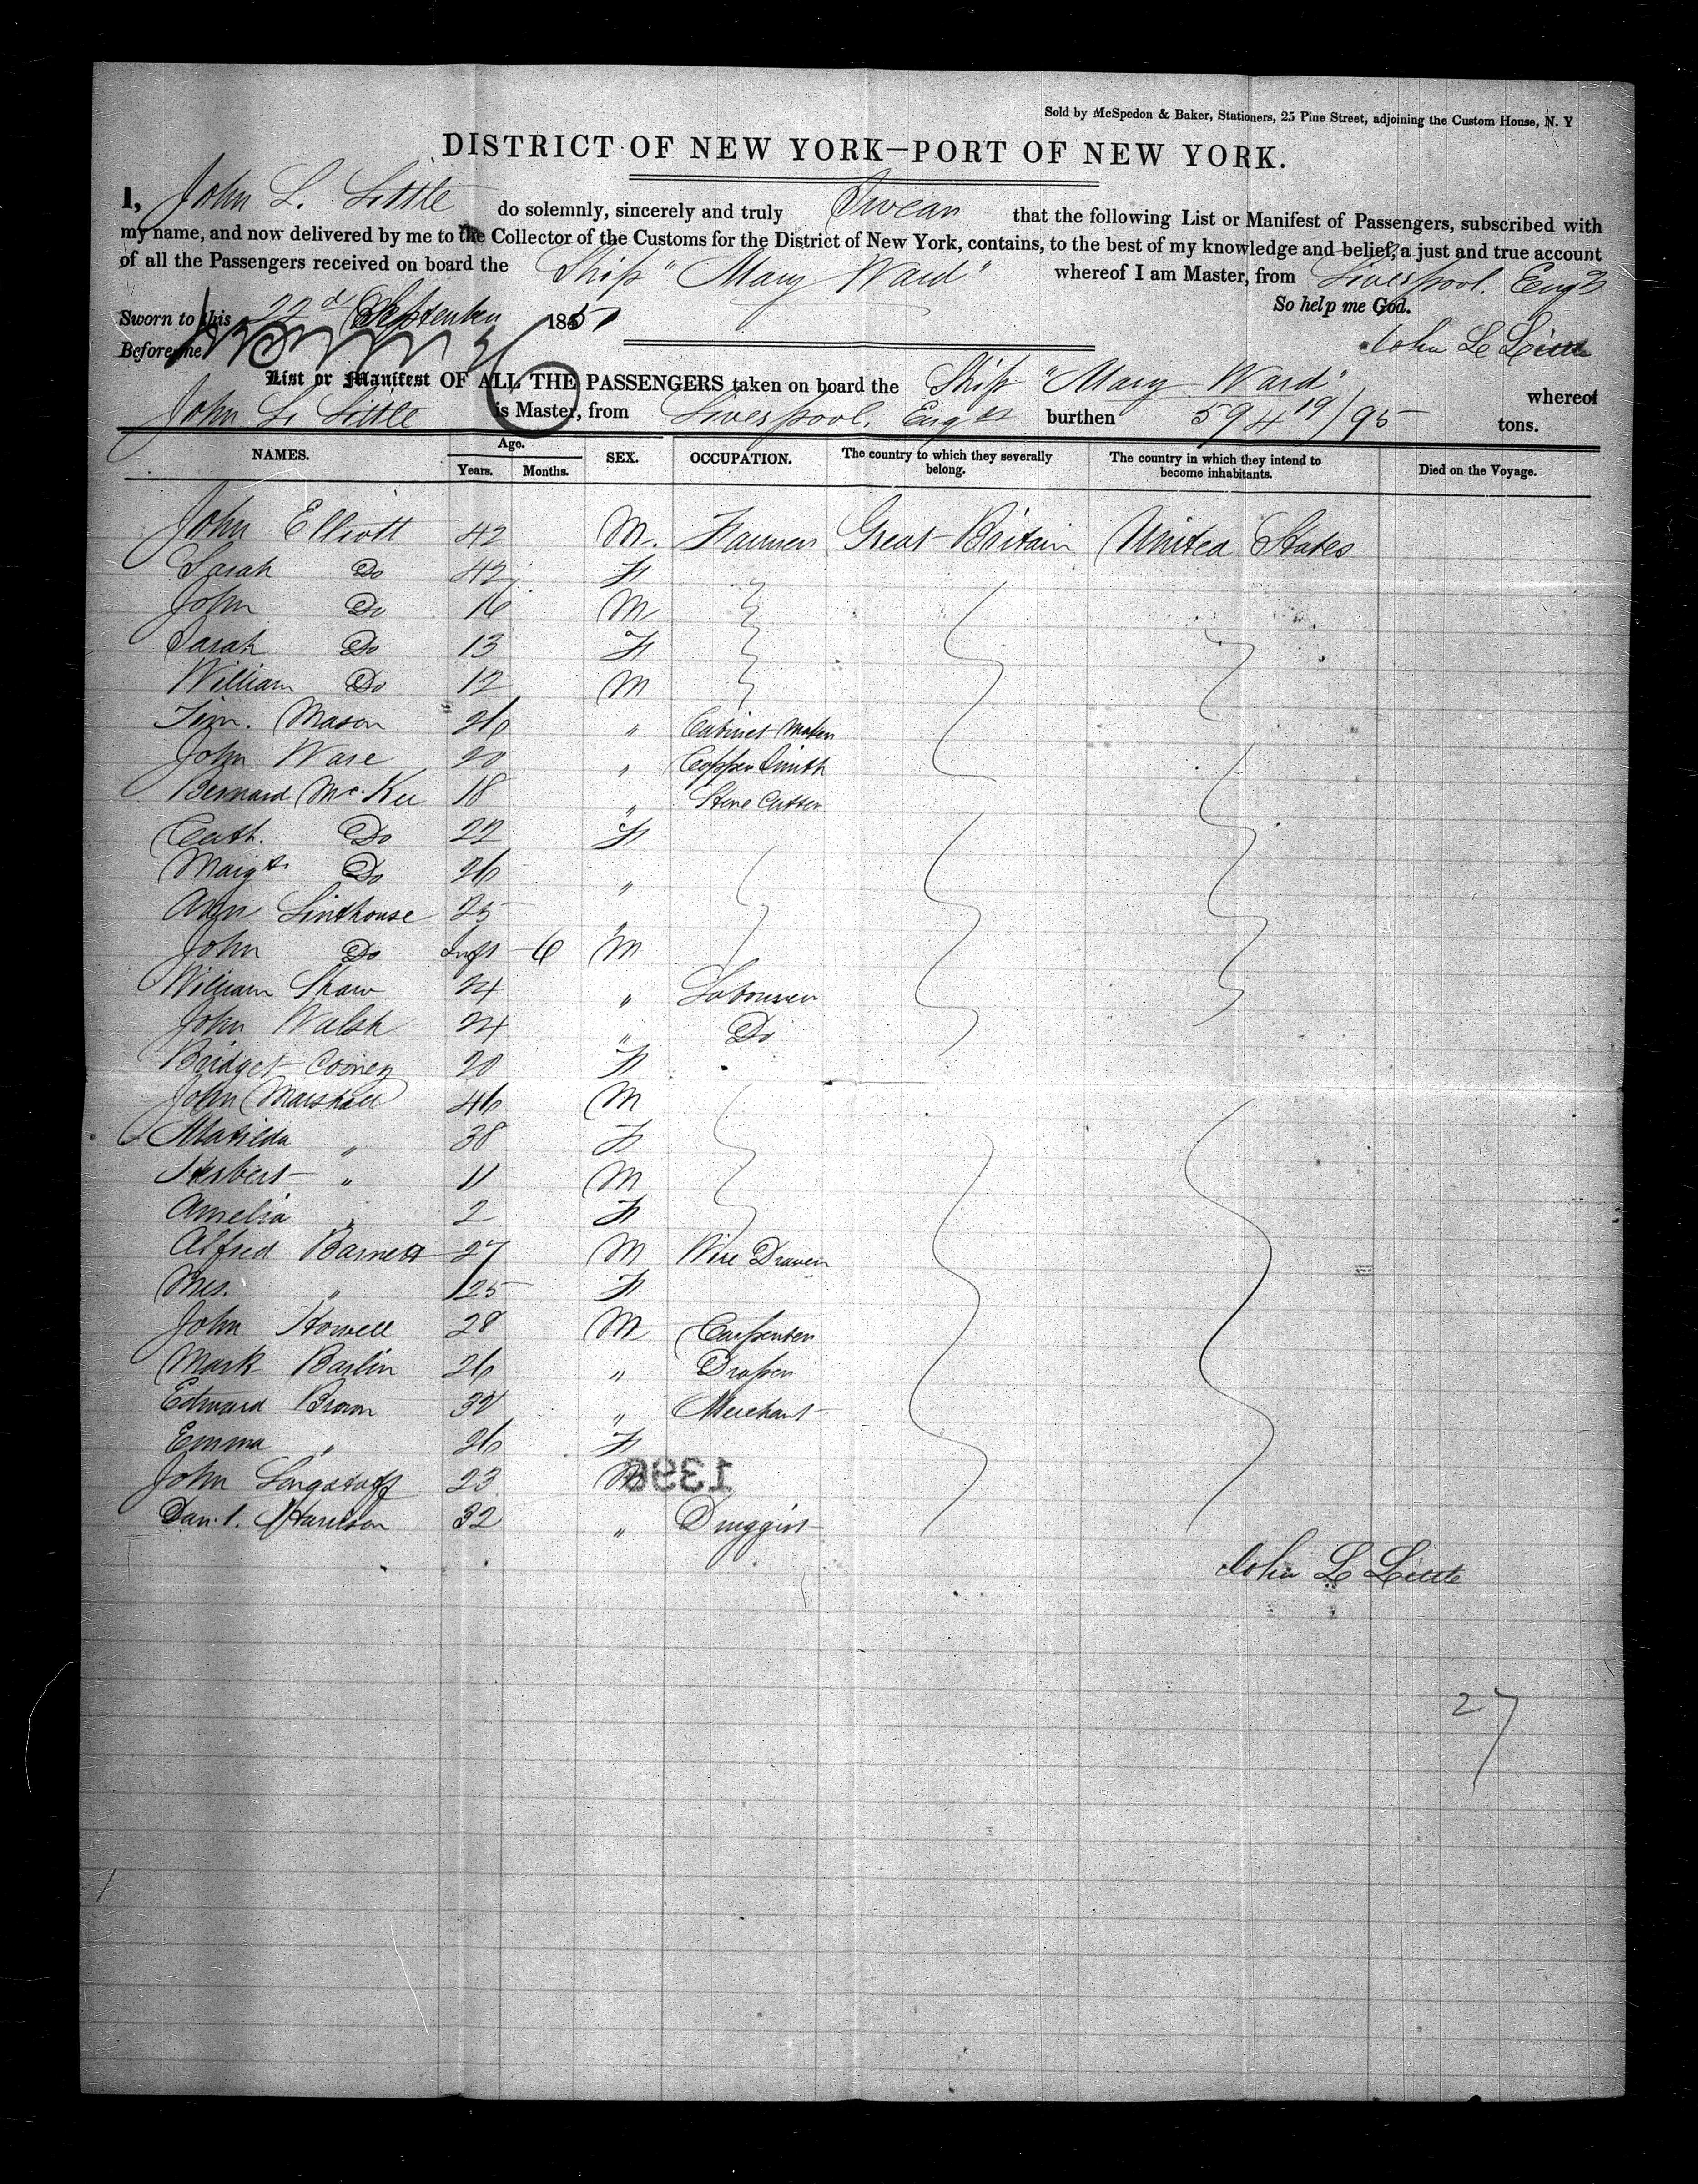 Sold by McSpedon & Baker, Stationers, 25 Pine Street, adjoining the Custom House, N. Y
DISTRICT OF NEW YORK—PORT OF NEW YORK.
I, John L. Little do solemnly, sincerely and truly Swear that the following List or Manifest of Passengers, subscribed with
my name, and now delivered by me to the Collector of the Customs for the District of New York, contains, to the best of my knowledge and belief, a just and true account
of all the Passengers received on board the Ship "Mary Ward" whereof I am Master, from Liverpool. Engd
So help me God.
Sworn to this 22d September 1851
Before me
John L Little
List or Manifest OF ALL THE PASSENGERS taken on board the Ship "Mary Ward" whereof
John L. Little is Master, from Liverpool, Engd burthen 594 19/95 tons.
NAMES. Age. Years. Months. SEX. OCCUPATION. The country to which they severally belong. The country in which they intend to become inhabitants. Died on the Voyage.
John Elliott 42 M. Farmer Great Britain United States
Sarah Do 42 F
John Do 16 M
Sarah Do 13 F
William Do 12 M
Jim. Mason 26 " Cabinet Maker
John Ware 20 " Copper Smith
Bernard McKee 18 " Stone Cutter
Cath. Do 22 F
Margt Do 26 "
Ann Linthouse 25 "
John Do Inft 6 M
William Shaw 24 " Labourer
John Walsh 24 " Do
Bridget Cooney 20 F
John Marshall 46 M
Matilda " 38 F
Herbert " 11 M
Amelia " 2 F
Alfred Barnett 27 M Wire Drawer
Mrs. " 25 F
John Howell 28 M Carpenter
Mark Barlin 26 " Draper
Edward Brown 32 " Merchant
Emma " 26 F
John Langstaff 23 M
Danl. Harrison 32 " Druggist
John L Little
27